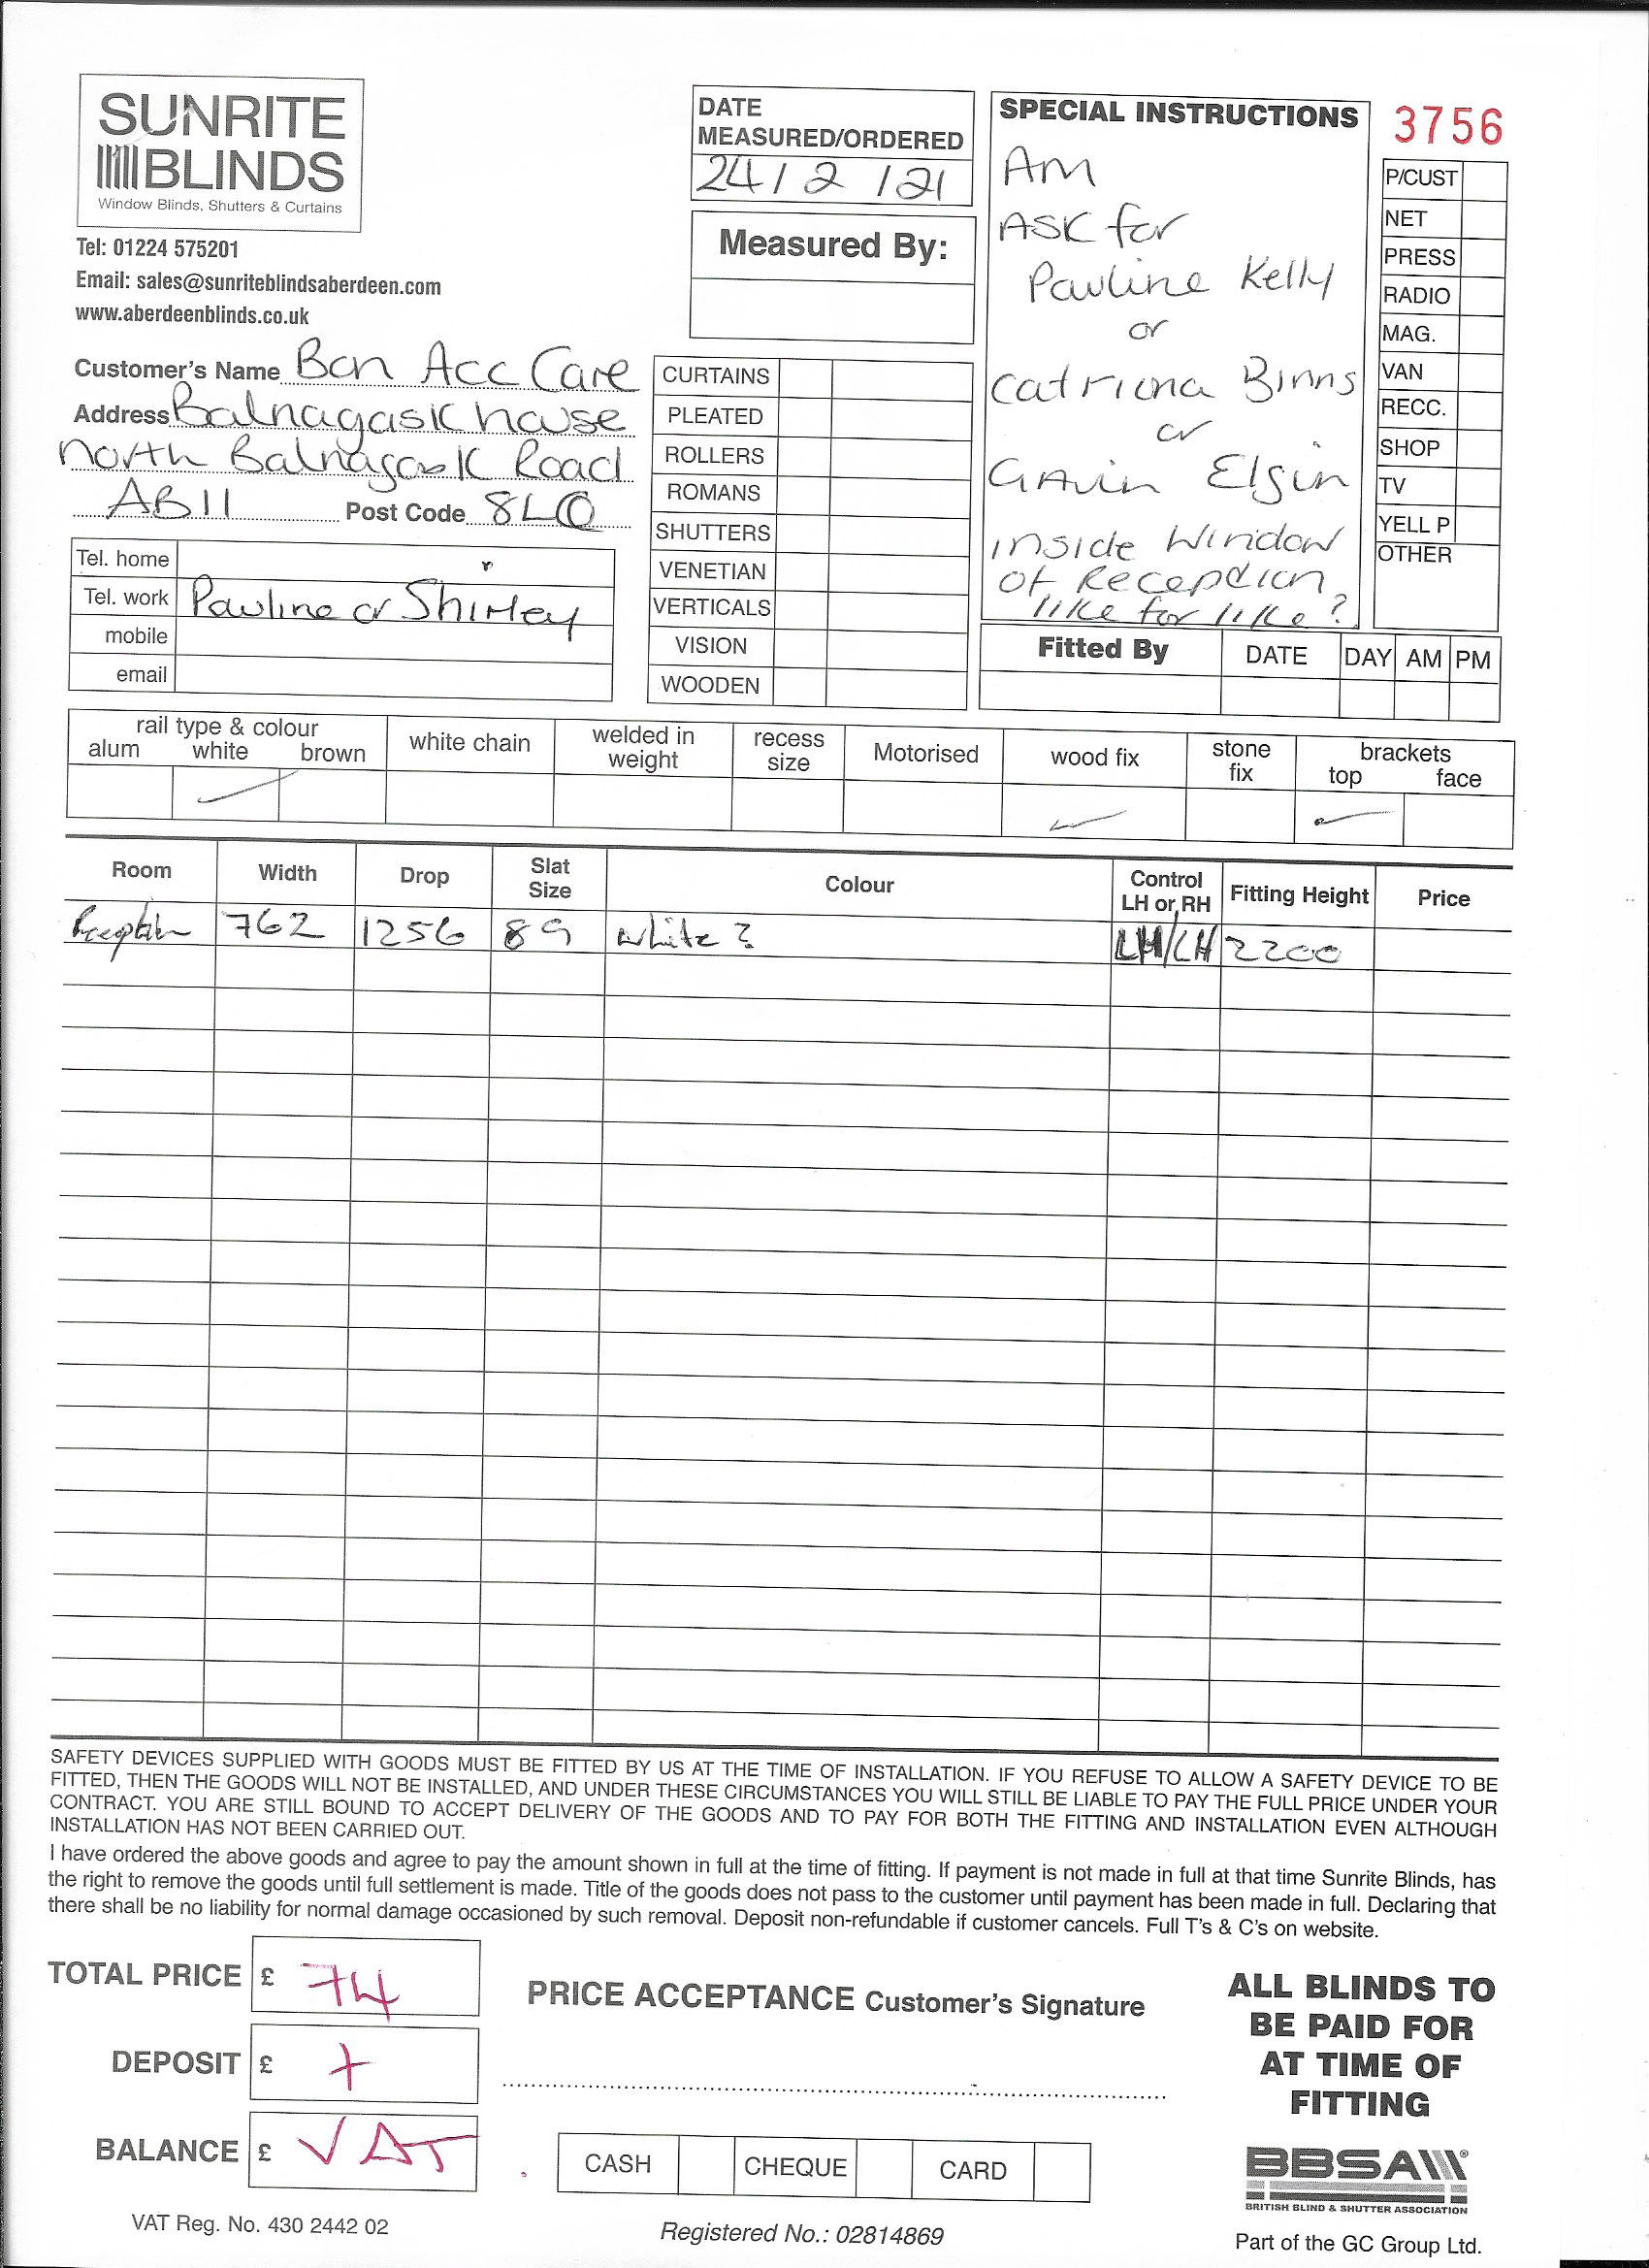 SUNRITE
BLINDS
Window Blinds, Shutters & Curtains
Tel: 01224 575201
Email: sales@sunriteblindsaberdeen.com
www.aberdeenblinds.co.uk
DATE
MEASURED/ORDERED
24/2/21
Measured By:
SPECIAL INSTRUCTIONS
AM
ASK for
Pauline Kelly
or
Catriona Binns
or
GAvin Elgin
inside Window
of Reception
like for like?
3756
P/CUST
NET
PRESS
RADIO
MAG.
VAN
RECC.
SHOP
TV
YELL P
OTHER
Customer's Name Bon Acc Care
Address Balnagask house
north Balnagask Road
AB11 Post Code 8LQ
Tel. home
Tel. work Pauline or Shirley
mobile
email
CURTAINS
PLEATED
ROLLERS
ROMANS
SHUTTERS
VENETIAN
VERTICALS
VISION
WOODEN
Fitted By DATE DAY AM PM
rail type & colour
alum white brown
white chain
welded in
weight
recess
size
Motorised
wood fix
stone
fix
brackets
top face
Room Width Drop Slat Size Colour Control LH or RH Fitting Height Price
Reception 762 1256 89 white? LH/LH 2200
SAFETY DEVICES SUPPLIED WITH GOODS MUST BE FITTED BY US AT THE TIME OF INSTALLATION. IF YOU REFUSE TO ALLOW A SAFETY DEVICE TO BE
FITTED, THEN THE GOODS WILL NOT BE INSTALLED, AND UNDER THESE CIRCUMSTANCES YOU WILL STILL BE LIABLE TO PAY THE FULL PRICE UNDER YOUR
CONTRACT. YOU ARE STILL BOUND TO ACCEPT DELIVERY OF THE GOODS AND TO PAY FOR BOTH THE FITTING AND INSTALLATION EVEN ALTHOUGH
INSTALLATION HAS NOT BEEN CARRIED OUT.
I have ordered the above goods and agree to pay the amount shown in full at the time of fitting. If payment is not made in full at that time Sunrite Blinds, has
the right to remove the goods until full settlement is made. Title of the goods does not pass to the customer until payment has been made in full. Declaring that
there shall be no liability for normal damage occasioned by such removal. Deposit non-refundable if customer cancels. Full T's & C's on website.
TOTAL PRICE £ 74
DEPOSIT £ +
BALANCE £ VAT
PRICE ACCEPTANCE Customer's Signature
CASH CHEQUE CARD
ALL BLINDS TO
BE PAID FOR
AT TIME OF
FITTING
BBSA
BRITISH BLIND & SHUTTER ASSOCIATION
VAT Reg. No. 430 2442 02
Registered No.: 02814869
Part of the GC Group Ltd.